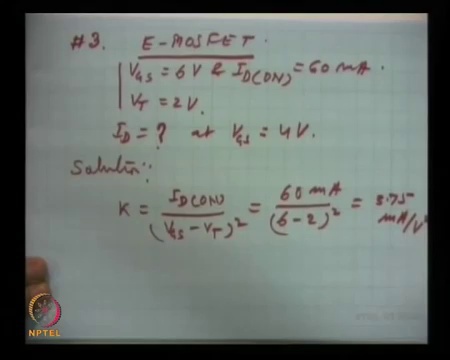 #3. E-MOSFET.
V_GS = 6V & I_D(ON) = 60 mA.
V_T = 2V.
I_D = ? at V_GS = 4V.
Solution:
K = I_D(ON) / (V_GS - V_T)^2 = 60 mA / (6-2)^2 = 3.75 mA/V^2
NPTEL